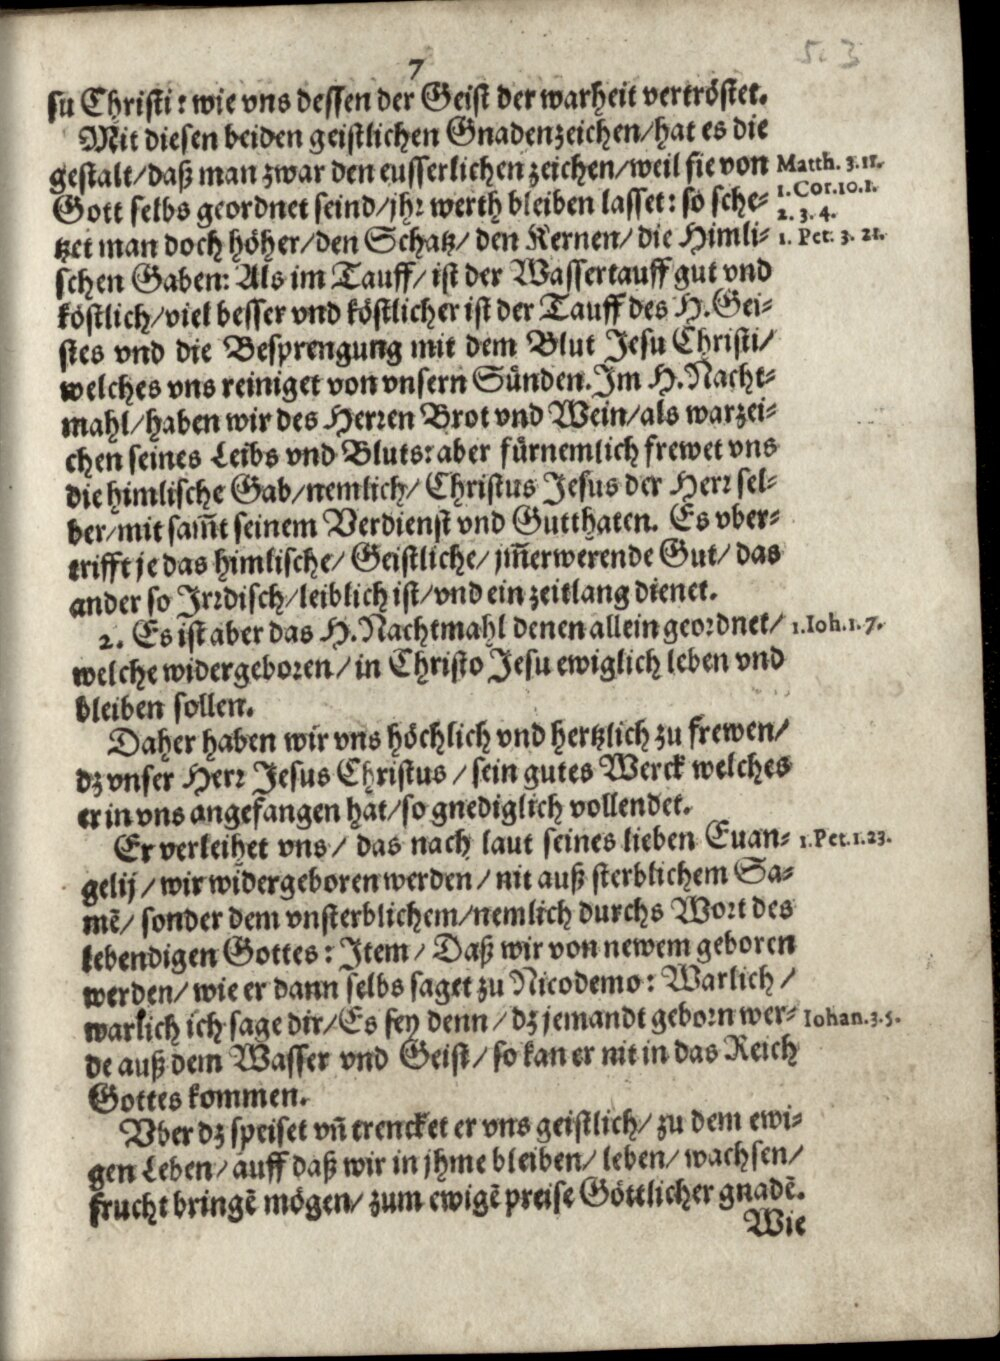 7
5. 3
su Christi: wie vns dessen der Geist der warheit vertröstet.
Mit diesen beiden geistlichen Gnadenzeichen/hat es die
gestalt/daß man zwar den eusserlichen zeichen/weil sie von Matth. 3.11.
Gott selbs geordnet seind/jhr werth bleiben lasset: so sche- 1. Cor. 10.1. 2. 3. 4.
tzet man doch höher/den Schatz/den Kernen/die Himli- 1. Pet. 3. 21.
schen Gaben: Als im Tauff/ist der Wassertauff gut vnd
köstlich/viel besser vnd köstlicher ist der Tauff des H. Gei-
stes vnd die Besprengung mit dem Blut Jesu Christi/
welches vns reiniget von vnsern Sünden. Im H. Nacht-
mahl/haben wir des Herren Brot vnd Wein/als warzei-
chen seines Leibs vnd Bluts: aber fürnemlich frewet vns
die himlische Gab/nemlich/Christus Jesus der Herr sel-
ber/mit sam̃t seinem Verdienst vnd Gutthaten. Es vber-
trifft je das himlische/Geistliche/jm̃erwerende Gut/das
ander so Jrrdisch/leiblich ist/vnd ein zeitlang dienet.
2. Es ist aber das H. Nachtmahl denen allein geordnet/ 1. Ioh. 1. 7.
welche widergeboren/in Christo Jesu ewiglich leben vnd
bleiben sollen.
Daher haben wir vns höchlich vnd hertzlich zu frewen/
dz vnser Herr Jesus Christus/sein gutes Werck welches
er in vns angefangen hat/so gnediglich vollendet.
Er verleihet vns/das nach laut seines lieben Euan- 1. Pet. 1.23.
gelij/wir widergeboren werden/nit auß sterblichem Sa-
mē/sonder dem vnsterblichem/nemlich durchs Wort des
lebendigen Gottes: Item/Daß wir von newem geboren
werden/wie er dann selbs saget zu Nicodemo: Warlich/
warlich ich sage dir/Es sey denn/dz jemandt geborn wer- Iohan. 3. 5.
de auß dem Wasser vnd Geist/so kan er nit in das Reich
Gottes kommen.
Vber dz speiset vn̄ trencket er vns geistlich/zu dem ewi-
gen Leben/auff daß wir in jhme bleiben/leben/wachsen/
frucht bringē mögen/zum ewigē preise Göttlicher gnadē.
Wie